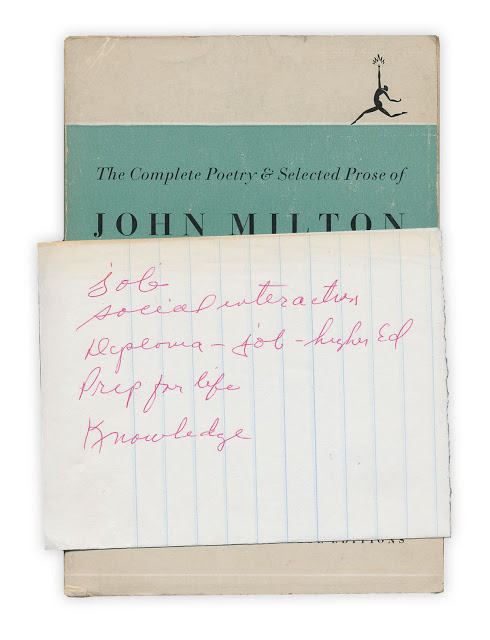 The Complete Poetry & Selected Prose of
JOHN MILTON
job
social interaction
Diploma – job – higher Ed
Prep for life
Knowledge
EDITIONS